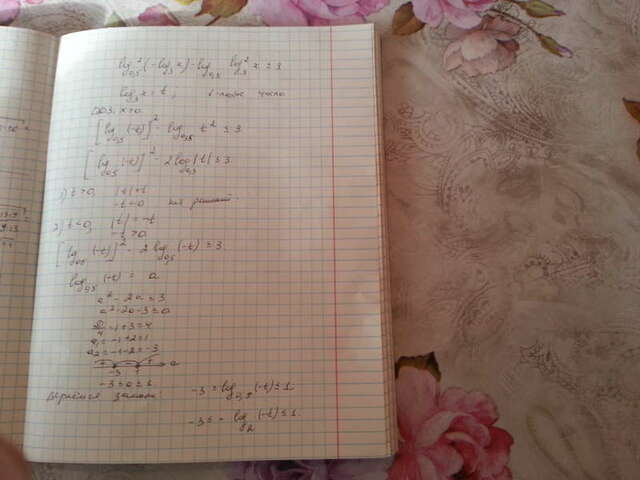 log²₀,₅(-log₃x) - log₀,₅ log₃²x ≤ 3
log₃x = t, t - люж. число
ОДЗ: x > 0
[log₀,₅(-t)]² - log₀,₅ t² ≤ 3
[log₀,₅(-t)]² - 2log₀,₅|t| ≤ 3
1) t > 0, |t| = t
-t < 0 нет решений.
2) t < 0, |t| = -t
-t > 0
[log₀,₅(-t)]² - 2 log₀,₅(-t) ≤ 3
log₀,₅(-t) = a
a² - 2a ≤ 3
a² - 2a - 3 ≤ 0
D/4 = 1 + 3 = 4
a₁ = -1 + 2 = 1
a₂ = -1 - 2 = -3
+ - + a
-3 1
-3 ≤ a ≤ 1
замена
-3 ≤ log₀,₅(-t) ≤ 1
-3 ≤ - log₂(-t) ≤ 1